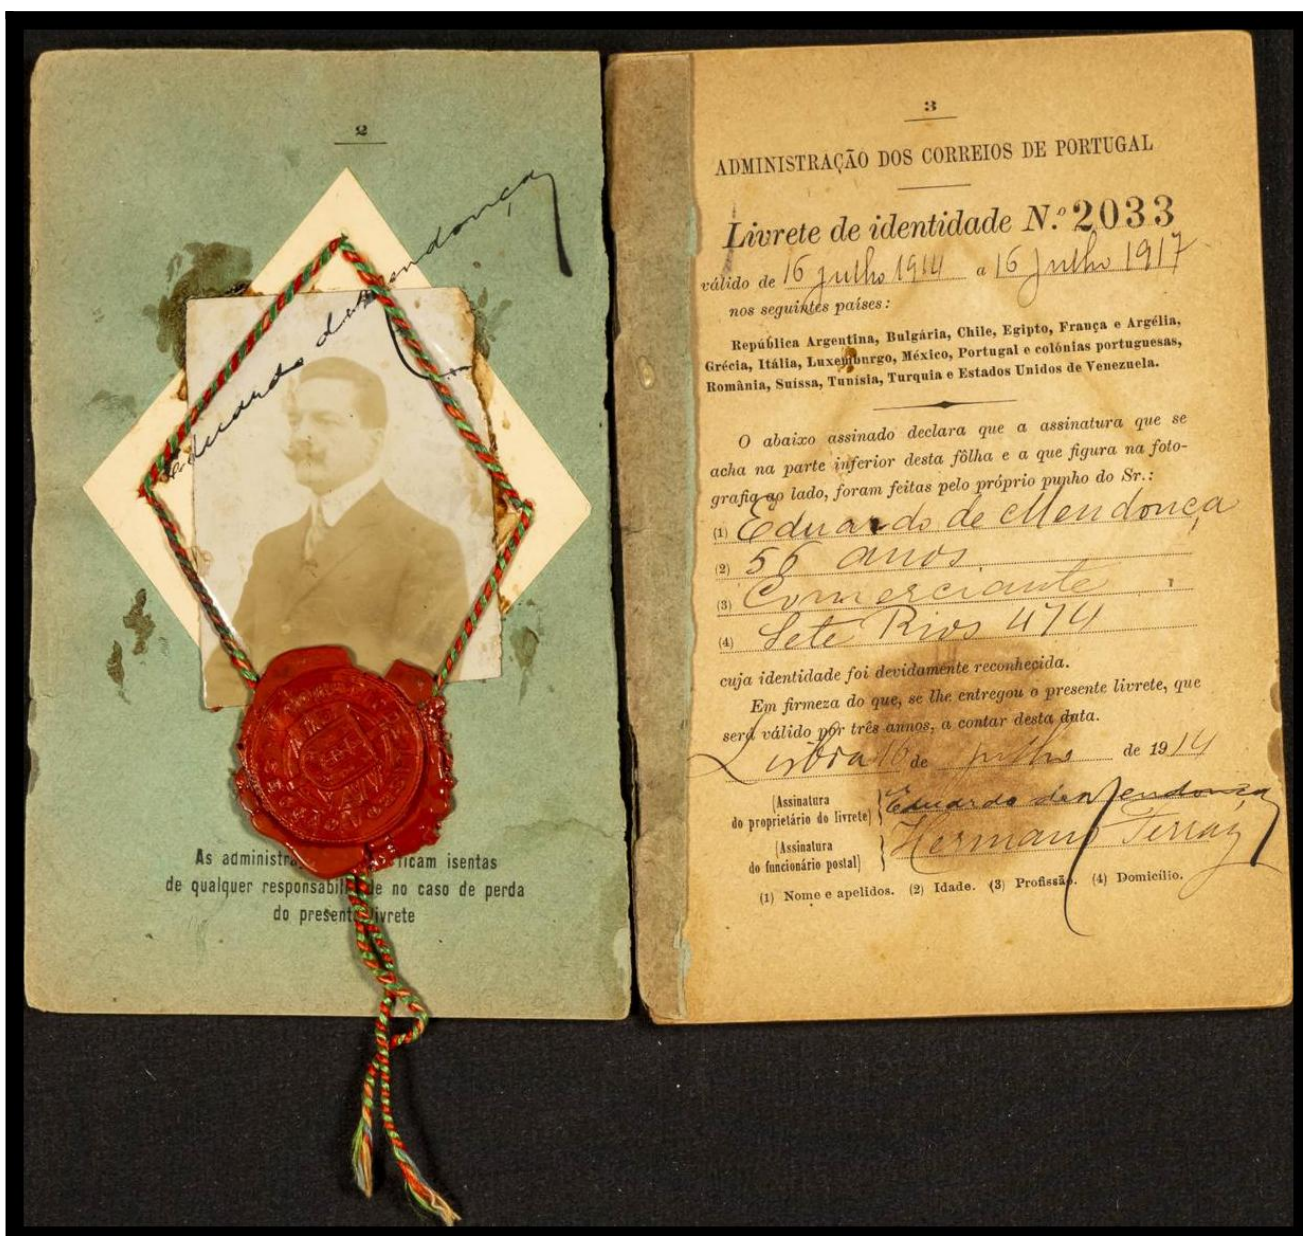 2
Eduardo de Mendonça
As administra ficam isentas
de qualquer responsabili de no caso de perda
do present livrete
3
ADMINISTRAÇÃO DOS CORREIOS DE PORTUGAL
Livrete de identidade N.º 2033
válido de 16 julho 1914 a 16 julho 1917
nos seguintes países:
República Argentina, Bulgária, Chile, Egipto, França e Argélia,
Grécia, Itália, Luxemburgo, México, Portugal e colónias portuguesas,
România, Suíssa, Tunísia, Turquia e Estados Unidos de Venezuela.
O abaixo assinado declara que a assinatura que se
acha na parte inferior desta fôlha e a que figura na foto-
grafia ao lado, foram feitas pelo próprio punho do Sr.:
(1) Eduardo de Mendonça
(2) 56 anos
(3) Comerciante
(4) Sete Rios 474
cuja identidade foi devidamente reconhecida.
Em firmeza do que, se lhe entregou o presente livrete, que
será válido por três annos, a contar desta data.
Lisboa 16 de julho de 1914
(Assinatura
do proprietário do livrete) Eduardo de Mendonça
(Assinatura
do funcionário postal) Hermano Ferraz
(1) Nome e apelidos. (2) Idade. (3) Profissão. (4) Domicílio.